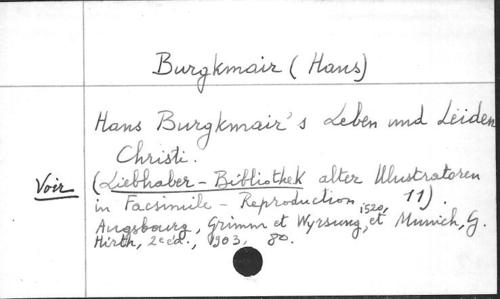 Burgkmair (Hans)
Hans Burgkmair's Leben und Leiden
Christi.
Voir
(Liebhaber-Bibliothek alter Illustratoren
in Facsimile-Reproduction, 11).
Augsbourg, Grimm et Wyrsung, 1520, et Munich, G.
Hirth, 2e éd., 1903, 8o.